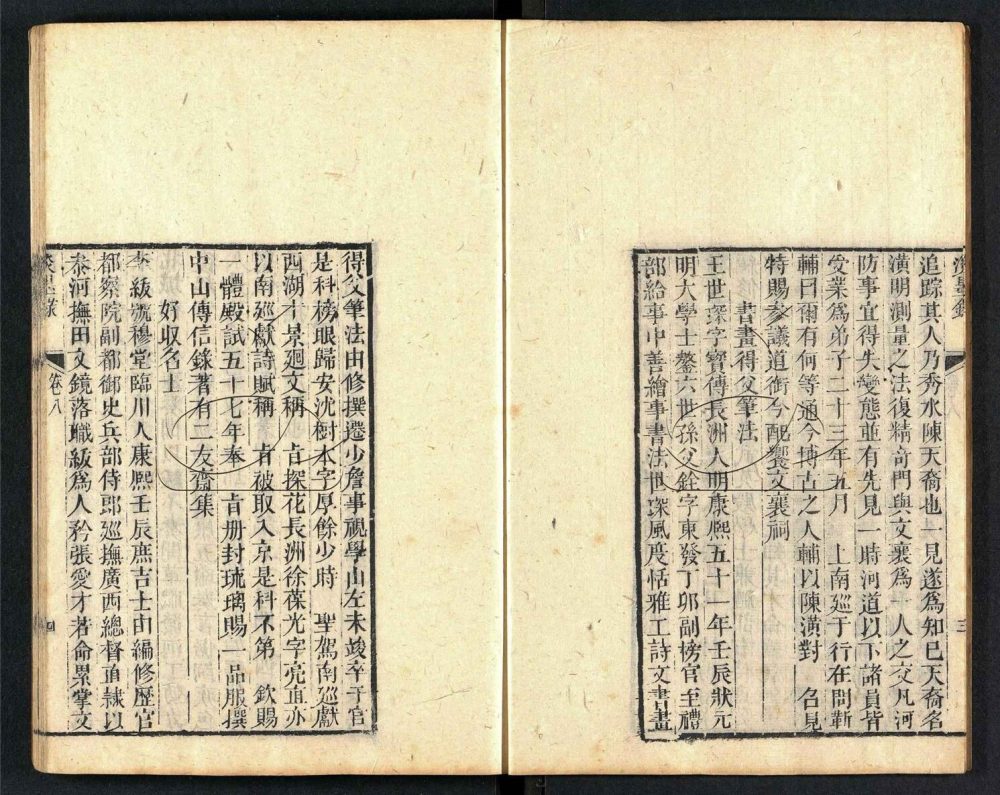 三
追踪其人乃秀水陳天裔也一見遂爲知己天裔名
潢明測量之法復精奇門與文襄爲一人之交凡河
防事宜得失變態並有先見一時河道以下諸員皆
受業爲弟子二十三年五月 上南廵于行在問靳
輔曰爾有何等通今博古之人輔以陳潢對 召見
特賜參議道銜今配饗文襄祠
書畫得父筆法
王世琛字寶傳長洲人明康熙五十一年壬辰狀元
明大學士鏊六世孫父銓字東發丁卯副榜官至禮
部給事中善繪事書法世琛風度恬雅工詩文書畫
得父筆法由修撰遷少詹事視學山左未竣卒于官
是科榜眼歸安沈樹本字厚餘少時 聖駕南廵獻
西湖十景廻文稱 旨探花長洲徐葆光字亮直亦
以南廵獻詩賦稱 旨被取入京是科不第 欽賜
一體殿試五十七年奉 旨册封琉璃賜一品服撰
中山傳信錄著有二友齋集
好收名士
李紱號穆堂臨川人康熙壬辰庶吉士由編修歷官
都察院副都御史兵部侍郎廵撫廣西總督直隷以
泰河撫田文鏡落職紱爲人矜張愛才若命累掌文
卷八
四